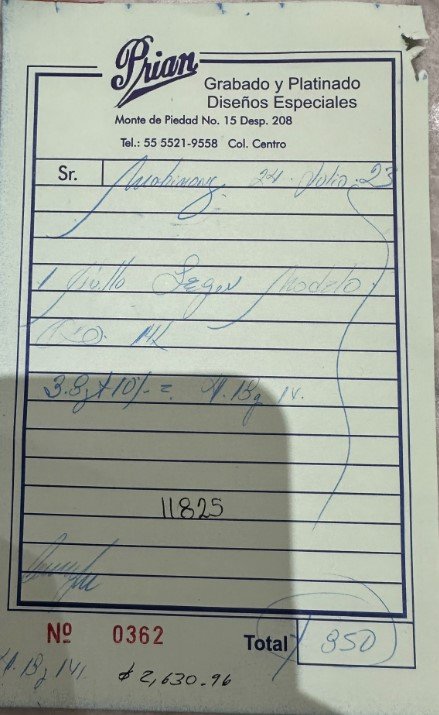 Prian
Grabado y Platinado
Diseños Especiales
Monte de Piedad No. 15 Desp. 208
Tel.: 55 5521-9558 Col. Centro
Sr. 24. Julio. 23
1 Anillo Segun Modelo
14K
3.8g + 10% = 4.18g 14.
11825
Nº 0362 Total 950
4.18g 14
$ 2,630.96